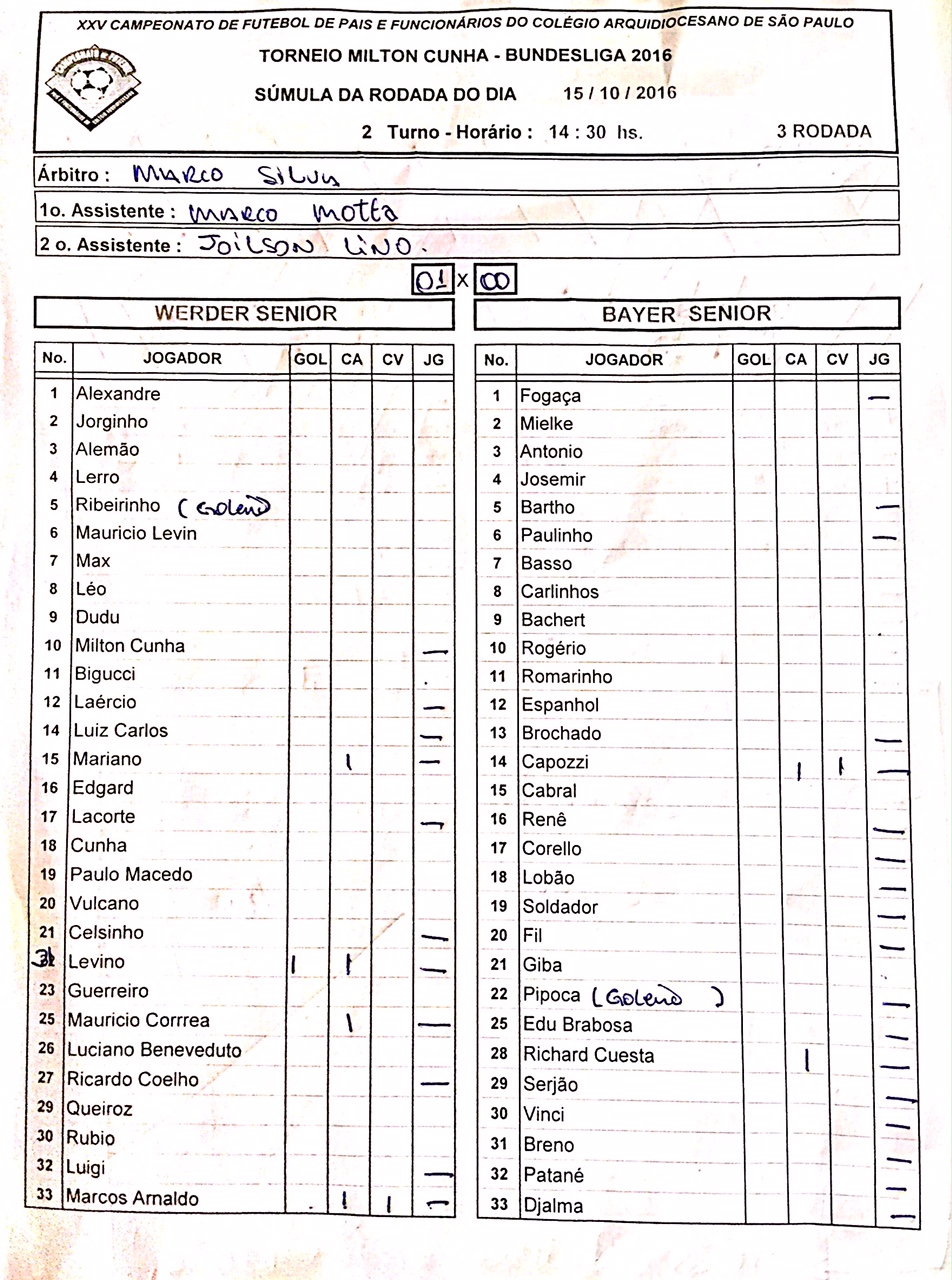 XXV CAMPEONATO DE FUTEBOL DE PAIS E FUNCIONÁRIOS DO COLÉGIO ARQUIDIOCESANO DE SÃO PAULO
TORNEIO MILTON CUNHA - BUNDESLIGA 2016
SÚMULA DA RODADA DO DIA 15 / 10 / 2016
2 Turno - Horário : 14 : 30 hs. 3 RODADA
Árbitro : MARCO SILVA
1o. Assistente : MARCO MOTTA
2 o. Assistente : JOILSON LINO.
01 X 00
WERDER SENIOR
No. JOGADOR GOL CA CV JG
1 Alexandre
2 Jorginho
3 Alemão
4 Lerro
5 Ribeirinho (Goleiro)
6 Mauricio Levin
7 Max
8 Léo
9 Dudu
10 Milton Cunha —
11 Bigucci
12 Laércio —
14 Luiz Carlos —
15 Mariano | —
16 Edgard
17 Lacorte —
18 Cunha
19 Paulo Macedo
20 Vulcano
21 Celsinho —
Levino | | —
23 Guerreiro
25 Mauricio Corrrea | —
26 Luciano Beneveduto
27 Ricardo Coelho —
29 Queiroz
30 Rubio
32 Luigi —
33 Marcos Arnaldo | | —
BAYER SENIOR
No. JOGADOR GOL CA CV JG
1 Fogaça —
2 Mielke
3 Antonio
4 Josemir
5 Bartho —
6 Paulinho —
7 Basso
8 Carlinhos
9 Bachert
10 Rogério
11 Romarinho
12 Espanhol
13 Brochado —
14 Capozzi | | —
15 Cabral
16 Renê —
17 Corello —
18 Lobão —
19 Soldador —
20 Fil —
21 Giba
22 Pipoca (Goleiro) —
25 Edu Brabosa —
28 Richard Cuesta | —
29 Serjão —
30 Vinci —
31 Breno —
32 Patané —
33 Djalma —